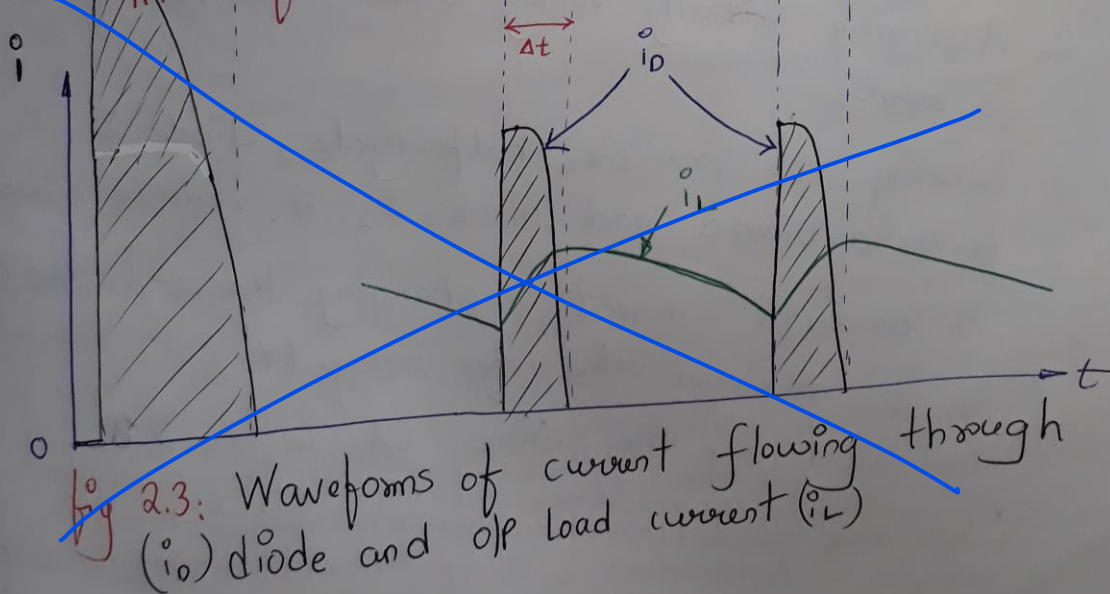 i
Δt
iD
iL
t
0
fig 2.3: Waveforms of current flowing through
(iD) diode and o/p load current (iL)